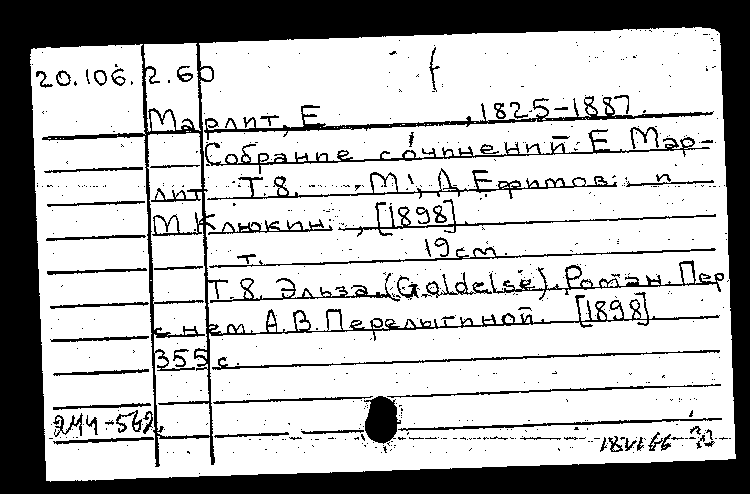 20.106.2.60
Марлит, Е ,1825-1887.
Собрание сочинений. Е. Мар-
лит Т.8. М., Д. Ефимов. и
М. Клюкин., [1898].
т. 19 cm.
Т.8. Эльза.(Goldelse). Роман. Пер
с нем. А.В. Перелыгиной. [1898].
355 с.
244-562.